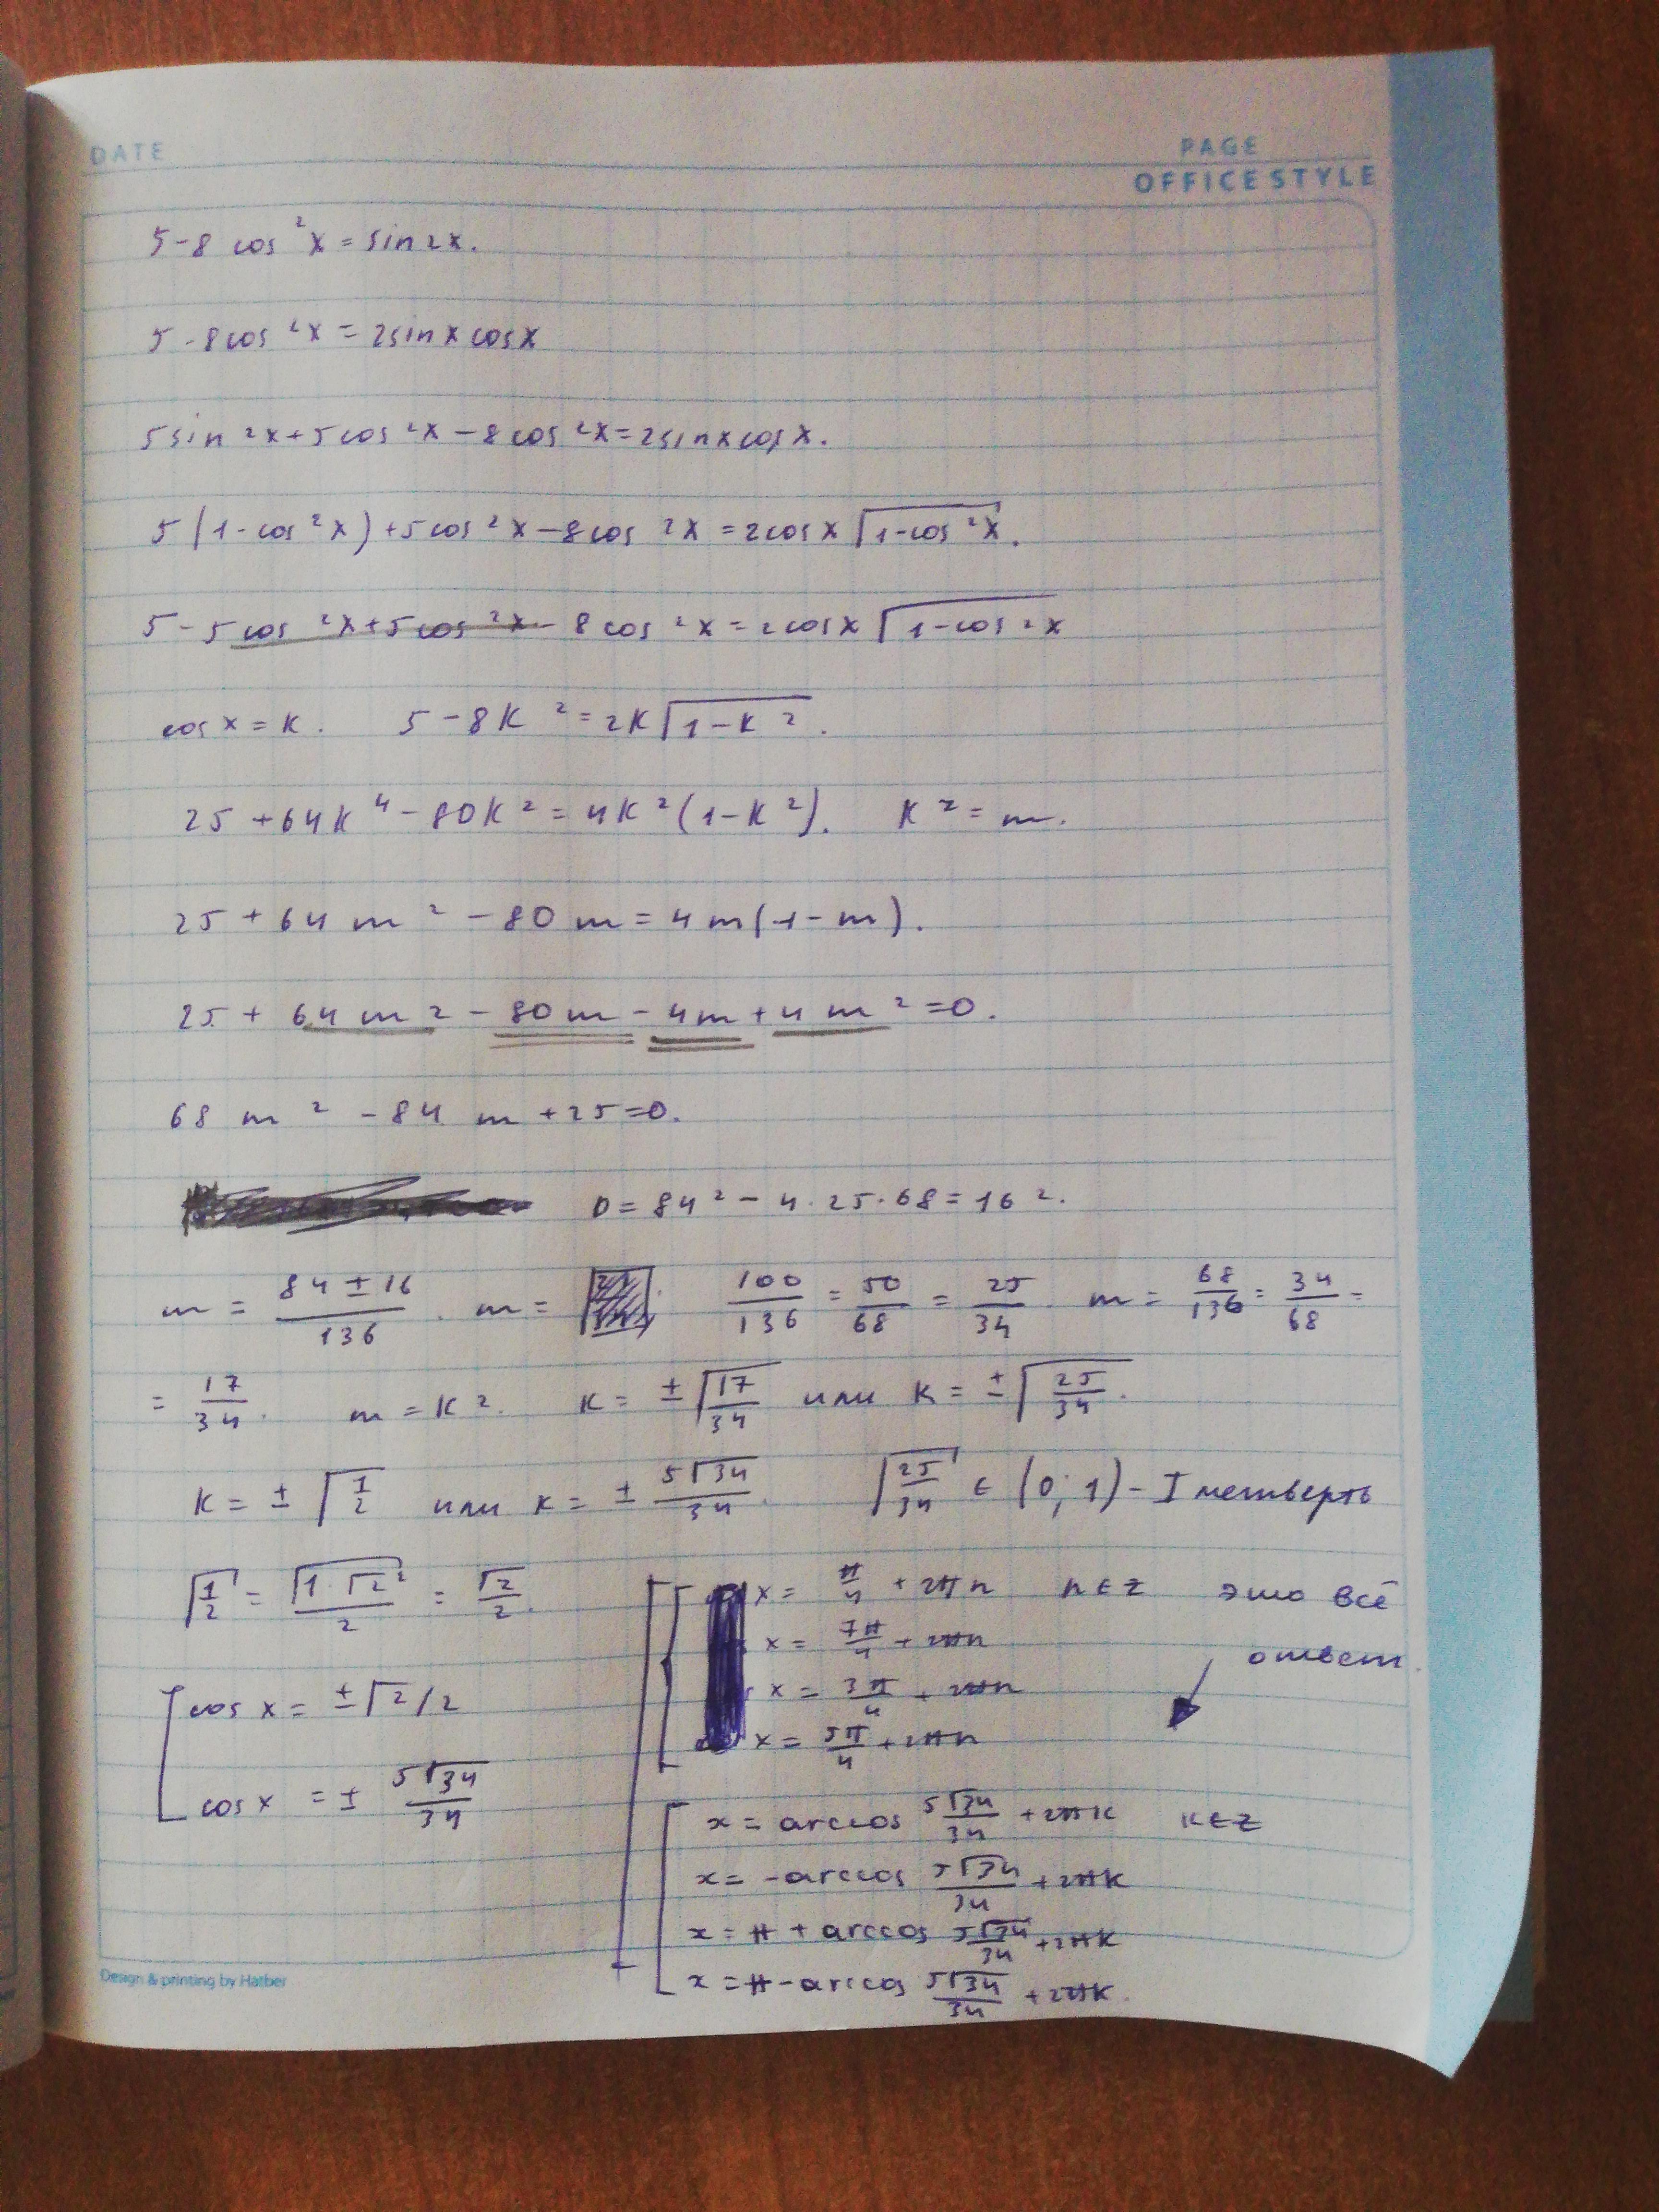 DATE
PAGE
OFFICE STYLE
5-8 cos²x = sin2x.
5-8cos²x = 2sinxcosx
5sin²x+5cos²x-8cos²x=2sinxcosx.
5(1-cos²x)+5cos²x-8cos²x=2cosx√(1-cos²x).
5-5cos²x+5cos²x-8cos²x=2cosx√(1-cos²x)
cosx=k. 5-8k²=2k√(1-k²).
25+64k⁴-80k²=4k²(1-k²). k²=m.
25+64m²-80m=4m(1-m).
25+64m²-80m-4m+4m²=0.
68m²-84m+25=0.
D=84²-4·25·68=16².
m = (84±16)/136. m = 100/136 = 50/68 = 25/34 m = 68/136 = 34/68 =
= 17/34. m=k². k=±√(17/34) или k=±√(25/34).
k=±√(1/2) или k=±5√34/34. √(25/34) ∈ (0;1) - I четверть
√(1/2) = √(1·√2²)/2 = √2/2.
x = π/4 + 2πn n∈Z это всё
x = 7π/4 + 2πn ответ.
x = 3π/4 + 2πn
x = 5π/4 + 2πn
cosx = ±√2/2
cosx = ± 5√34/34
x = arccos 5√34/34 + 2πk k∈Z
x = -arccos 5√34/34 + 2πk
x = π + arccos 5√34/34 + 2πk
x = π - arccos 5√34/34 + 2πk.
Design & printing by Hatber